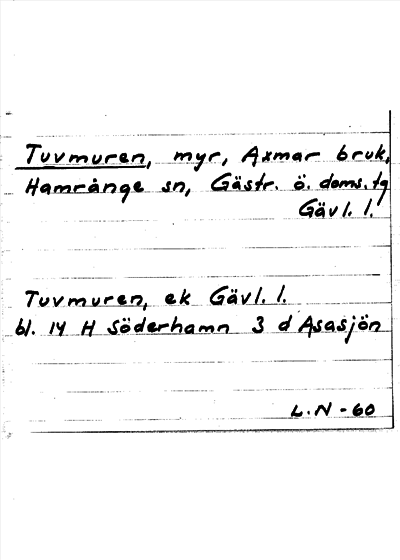 Tuvmuren, myr, Axmar bruk,
Hamrånge sn, Gästr. ö. doms. tg
Gävl. l.
Tuvmuren, ek Gävl. l.
bl. 14 H Söderhamn 3 d Åsasjön
L.N - 60